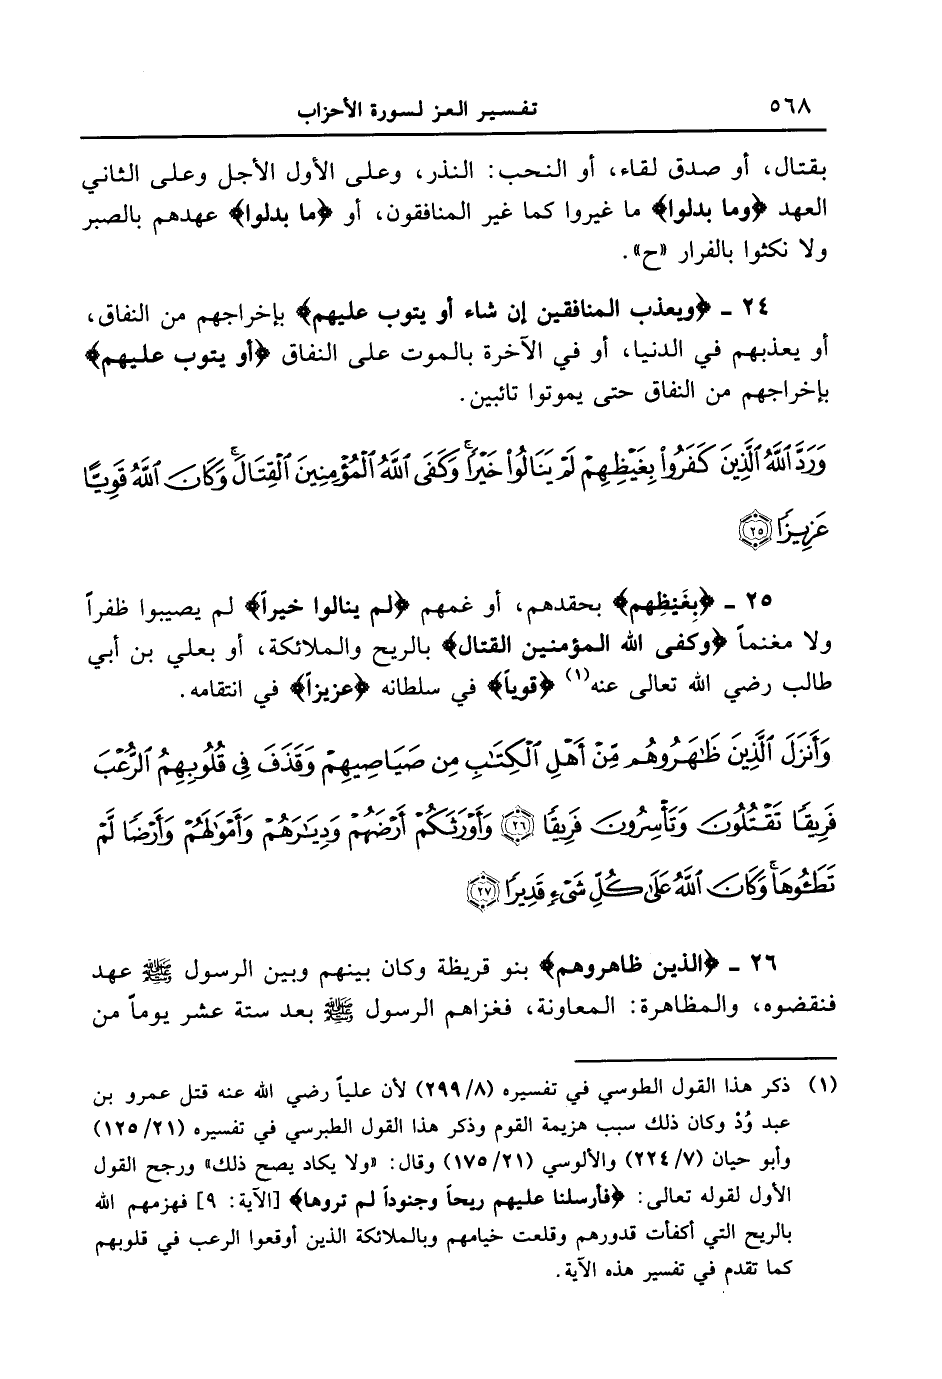 ٥٦٨
تفسير العز لسورة الأحزاب
بقتال، أو صدق لقاء، أو النحب: النذر، وعلى الأول الأجل وعلى الثاني
العهد ﴿وما بدلوا﴾ ما غيروا كما غير المنافقون، أو ﴿ما بدلوا﴾ عهدهم بالصبر
ولا نكثوا بالفرار «ح».
٢٤ ـ ﴿ويعذب المنافقين إن شاء أو يتوب عليهم﴾ بإخراجهم من النفاق،
أو يعذبهم في الدنيا، أو في الآخرة بالموت على النفاق ﴿أو يتوب عليهم﴾
بإخراجهم من النفاق حتى يموتوا تائبين.
وَرَدَّ ٱللَّهُ ٱلَّذِينَ كَفَرُوا۟ بِغَيْظِهِمْ لَمْ يَنَالُوا۟ خَيْرًا ۚ وَكَفَى ٱللَّهُ ٱلْمُؤْمِنِينَ ٱلْقِتَالَ ۚ وَكَانَ ٱللَّهُ قَوِيًّا
عَزِيزًا ﴿٢٥﴾
٢٥ ـ ﴿بِغَيْظِهم﴾ بحقدهم، أو غمهم ﴿لم ينالوا خيراً﴾ لم يصيبوا ظفراً
ولا مغنماً ﴿وكفى الله المؤمنين القتال﴾ بالريح والملائكة، أو بعلي بن أبي
طالب رضي الله تعالى عنه(١) ﴿قوياً﴾ في سلطانه ﴿عزيزاً﴾ في انتقامه.
وَأَنزَلَ ٱلَّذِينَ ظَٰهَرُوهُم مِّنْ أَهْلِ ٱلْكِتَٰبِ مِن صَيَاصِيهِمْ وَقَذَفَ فِى قُلُوبِهِمُ ٱلرُّعْبَ
فَرِيقًا تَقْتُلُونَ وَتَأْسِرُونَ فَرِيقًا ﴿٢٦﴾ وَأَوْرَثَكُمْ أَرْضَهُمْ وَدِيَٰرَهُمْ وَأَمْوَٰلَهُمْ وَأَرْضًا لَّمْ
تَطَـُٔوهَا ۚ وَكَانَ ٱللَّهُ عَلَىٰ كُلِّ شَىْءٍ قَدِيرًا ﴿٢٧﴾
٢٦ ـ ﴿الذين ظاهروهم﴾ بنو قريظة وكان بينهم وبين الرسول ﷺ عهد
فنقضوه، والمظاهرة: المعاونة، فغزاهم الرسول ﷺ بعد ستة عشر يوماً من
(١) ذكر هذا القول الطوسي في تفسيره (٢٩٩/٨) لأن علياً رضي الله عنه قتل عمرو بن
عبد وُدْ وكان ذلك سبب هزيمة القوم وذكر هذا القول الطبرسي في تفسيره (١٢٥/٢١)
وأبو حيان (٢٢٤/٧) والألوسي (١٧٥/٢١) وقال: «ولا يكاد يصح ذلك» ورجح القول
الأول لقوله تعالى: ﴿فأرسلنا عليهم ريحاً وجنوداً لم تروها﴾ [الآية: ٩] فهزمهم الله
بالريح التي أكفأت قدورهم وقلعت خيامهم وبالملائكة الذين أوقعوا الرعب في قلوبهم
كما تقدم في تفسير هذه الآية.